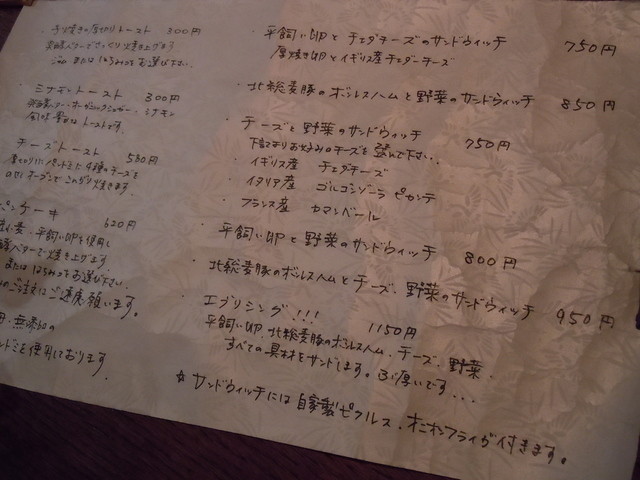 厚切りトースト 300円
焼き上げます
または はちみつをお選び下さい。
シナモントースト 300円
シナモン
トーストです。
チーズトースト 580円
4種のチーズを
のせ、オーブンでこんがり焼きます。
ケーキ 620円
小麦・平飼い卵を使用し
バターで焼き上げます
または はちみつをお選び下さい
のご注文はご遠慮願います。
無添加の
を使用しております
・平飼い卵とチェダチーズのサンドウィッチ 750円
厚焼き卵とイギリス産チェダーチーズ
・北総麦豚のボンレスハムと野菜のサンドウィッチ 850円
・チーズと野菜のサンドウィッチ 750円
下記よりお好みのチーズを選んで下さい…
・イギリス産 チェダチーズ
・イタリア産 ゴルゴンゾーラ ピカンテ
・フランス産 カマンベール
・平飼い卵と野菜のサンドウィッチ 800円
・北総麦豚のボンレスハムとチーズ、野菜のサンドウィッチ 950円
・エブリシング!!! 1150円
平飼い卵、北総麦豚のボンレスハム、チーズ、野菜、
すべての具材をサンドします。ぶ厚いです...
☆サンドウィッチには自家製ピクルス、オニオンフライが付きます。